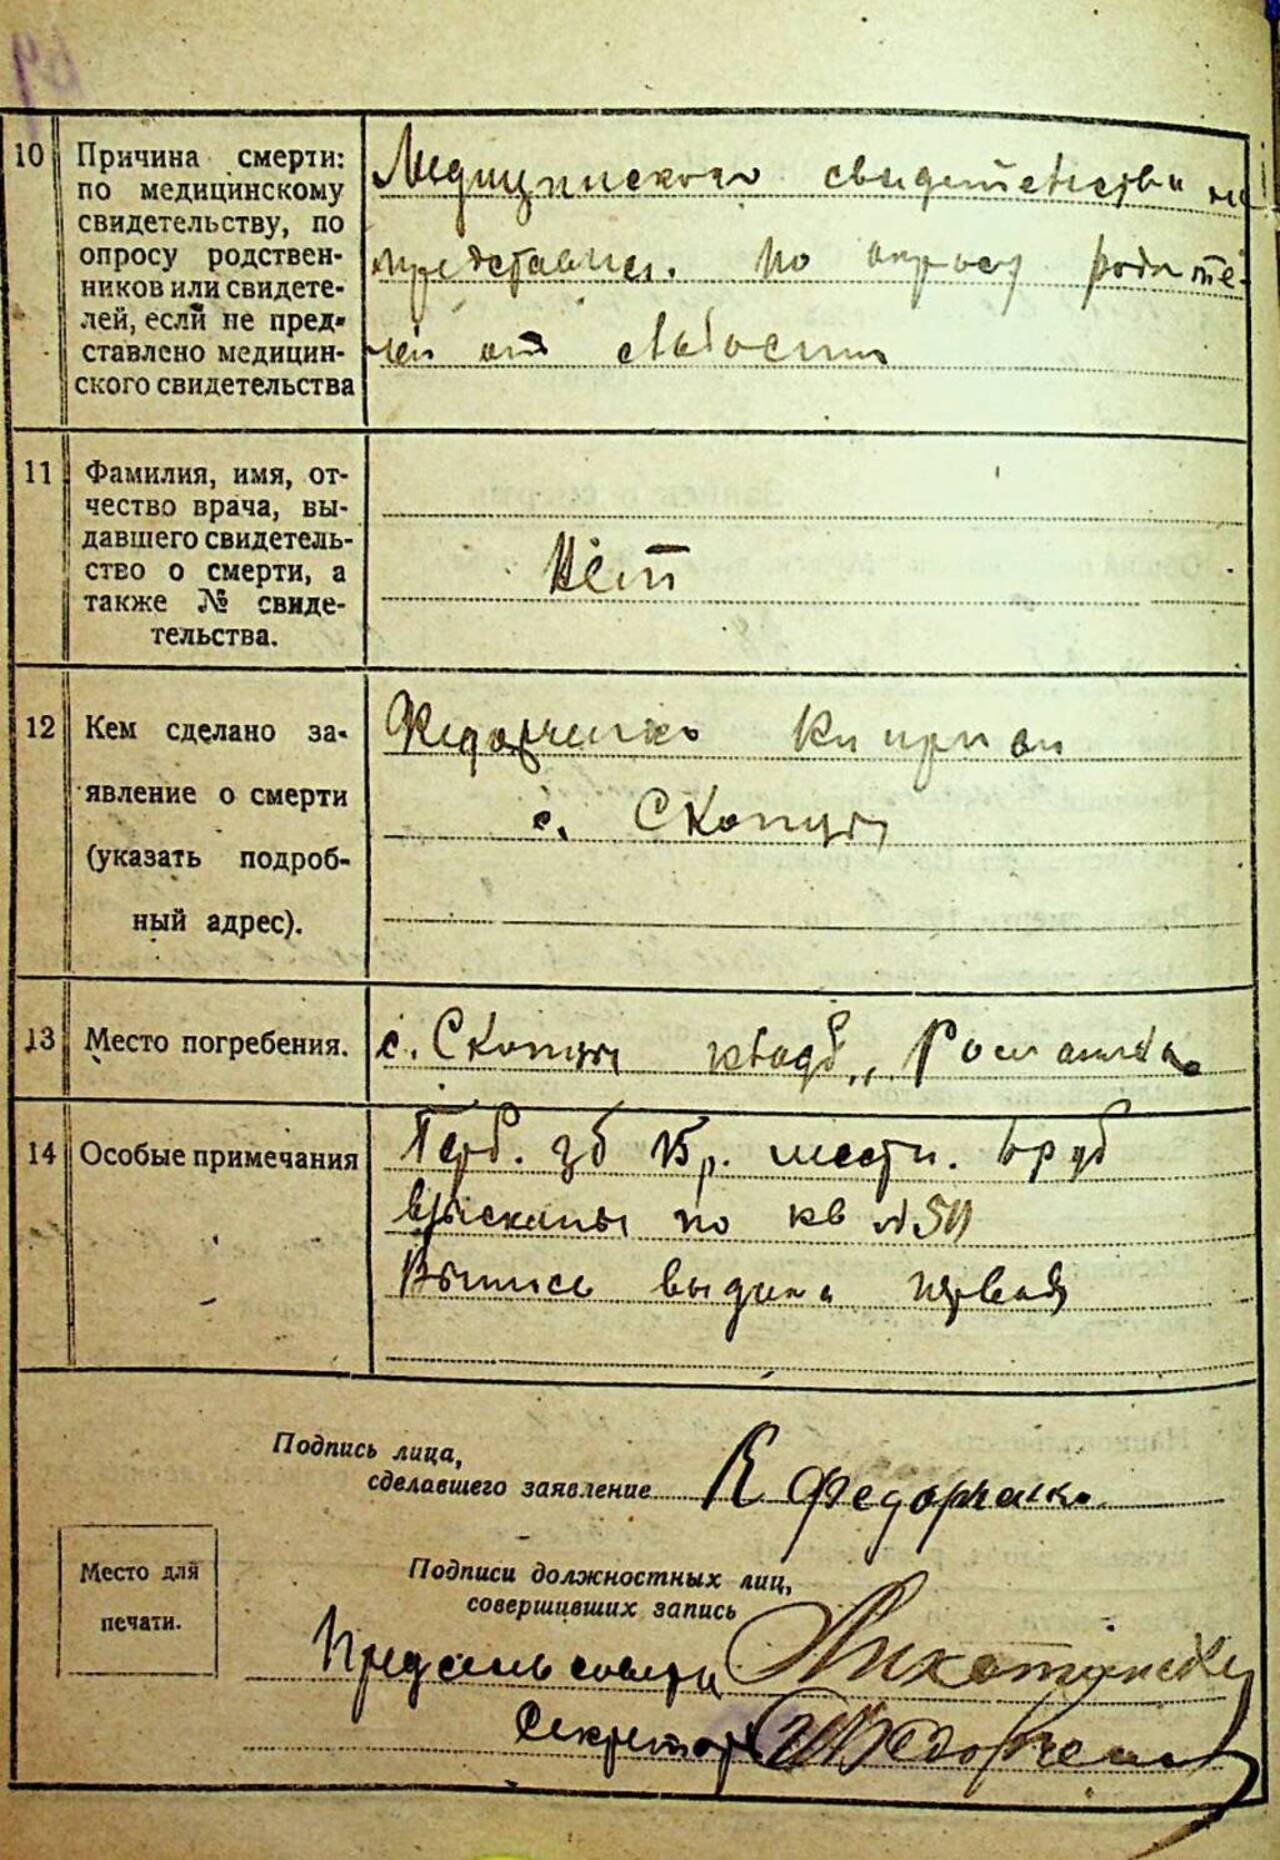 10 Причина смерти:
по медицинскому
свидетельству, по
опросу родствен-
ников или свидете-
лей, если не пред-
ставлено медицин-
ского свидетельства
Медицинского свидетельства не
представлен. по опросу родите-
лей от слабости
11 Фамилия, имя, от-
чество врача, вы-
давшего свидетель-
ство о смерти, а
также № свиде-
тельства.
Нет
12 Кем сделано за-
явление о смерти
(указать подроб-
ный адрес).
Федорченко Киприан
с. Скопцы
13 Место погребения.
с. Скопцы кладб.
14 Особые примечания
Герб. зб 15 р. местн.
взысканы по кв №
Выпись выдана первая
Подпись лица,
сделавшего заявление К Федорченко
Место для
печати.
Подписи должностных лиц,
совершивших запись
Предсельсовета
Секретарь Федорченко